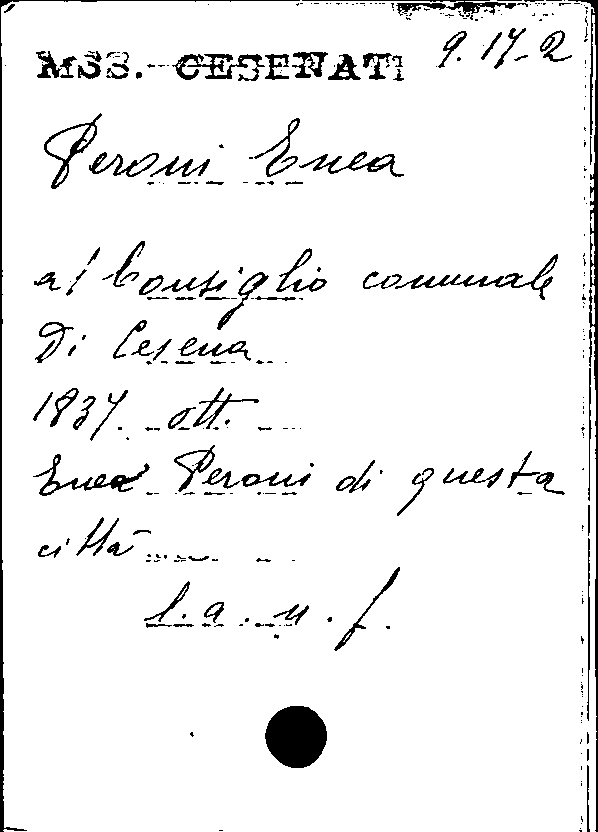 MSS. CESENATI 9.17-2
Peroni Enea
al Consiglio comunale
Di Cesena
1837. ott.
Enea Peroni di questa
città
l. a. n. f.